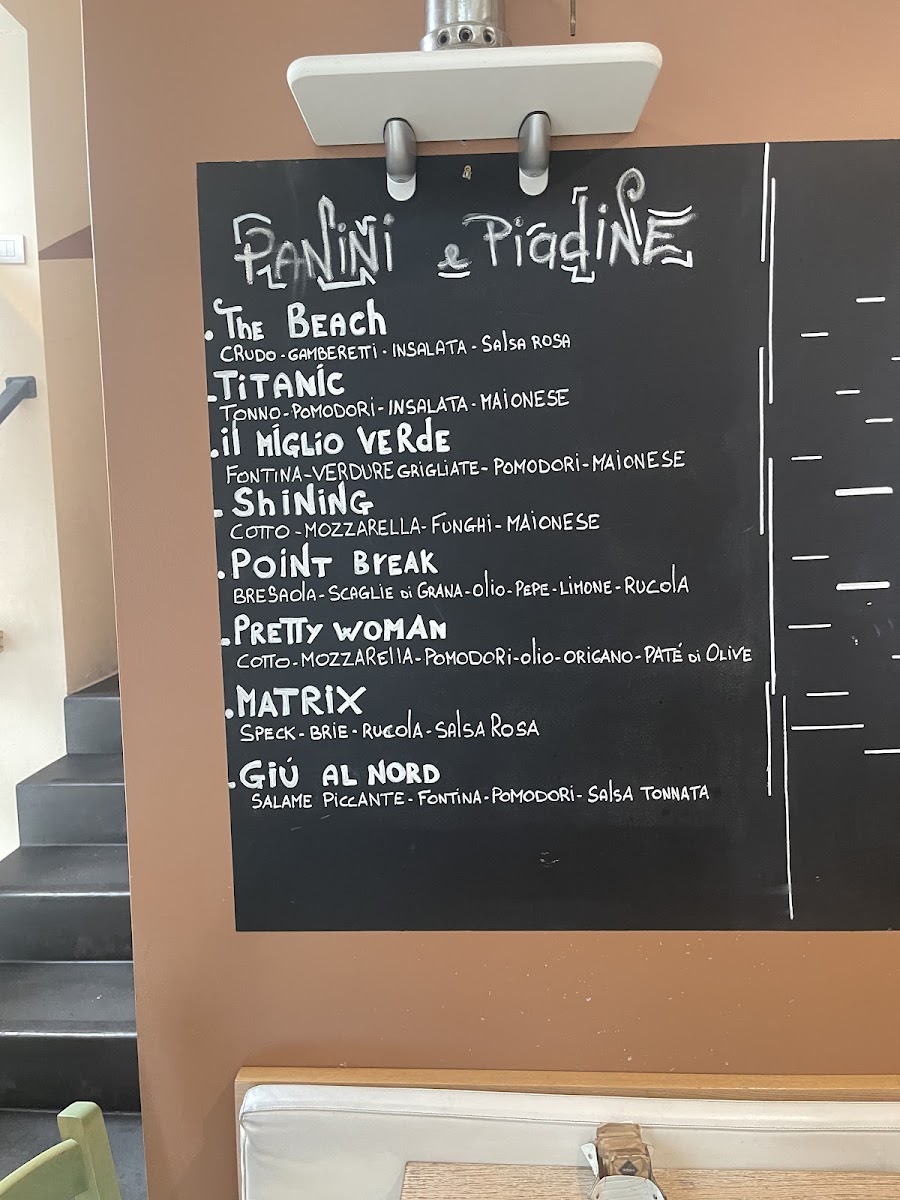 PANiNi e PiadiNE
.The BEACh
CRUDO - GAMBERETTI - INSALATA - SALSA ROSA
.TiTANiC
TONNO - POMODORI - INSALATA - MAIONESE
.il MiGLiO VERdE
FONTINA - VERDURE GRIGLIATE - POMODORI - MAIONESE
.ShiNiNG
COTTO - MOZZARELLA - FUNGHI - MAIONESE
.POiNT BrEAK
BRESAOLA - SCAGLIE di GRANA - olio - PEPE - LIMONE - RUCOLA
.PRETTY WOMAN
COTTO - MOZZARELLA - POMODORI - olio - ORIGANO - PATÉ di OLIVE
.MATRiX
SPECK - BRIE - RUCOLA - SALSA ROSA
.GiÚ AL NORD
SALAME PICCANTE - FONTINA - POMODORI - SALSA TONNATA